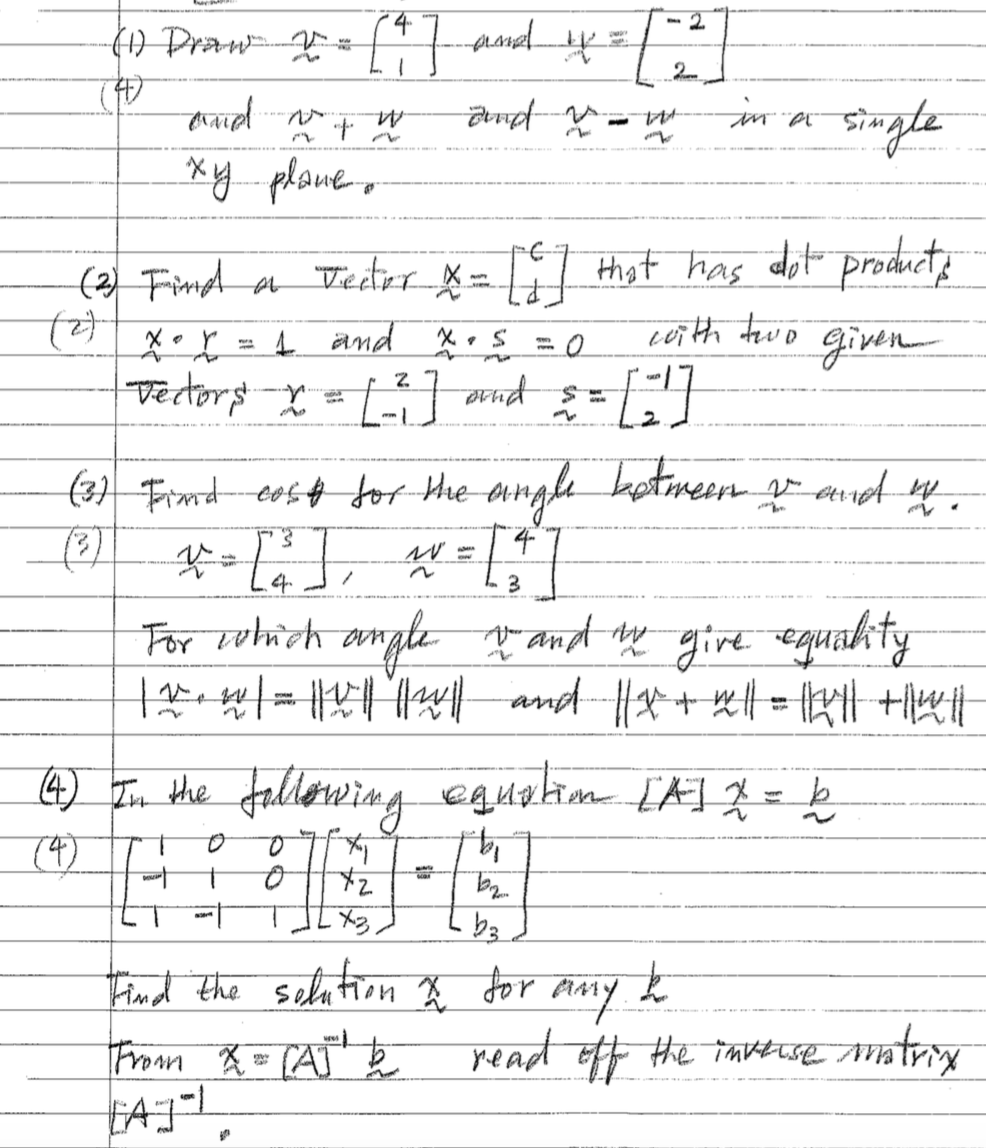 (1) Draw v = [4 1] and w = [-2 2]
(4)
and v + w and v - w in a single
xy plane.
(2) Find a vector x = [c d] that has dot products
(2) x · r = 1 and x · s = 0 with two given
vectors r = [2 -1] and s = [-1 2]
(3) Find cos θ for the angle between v and w.
(3) v = [3 4], w = [4 3]
For which angle v and w give equality
|v · w| = ||v|| ||w|| and ||v + w|| = ||v|| + ||w||
(4) In the following equation [A] x = b
(4)
[1 0 0] [x1] = [b1]
[-1 1 0] [x2] [b2]
[1 -1 1] [x3] [b3]
Find the solution x for any b
From x = [A]^-1 b read off the inverse matrix
[A]^-1.